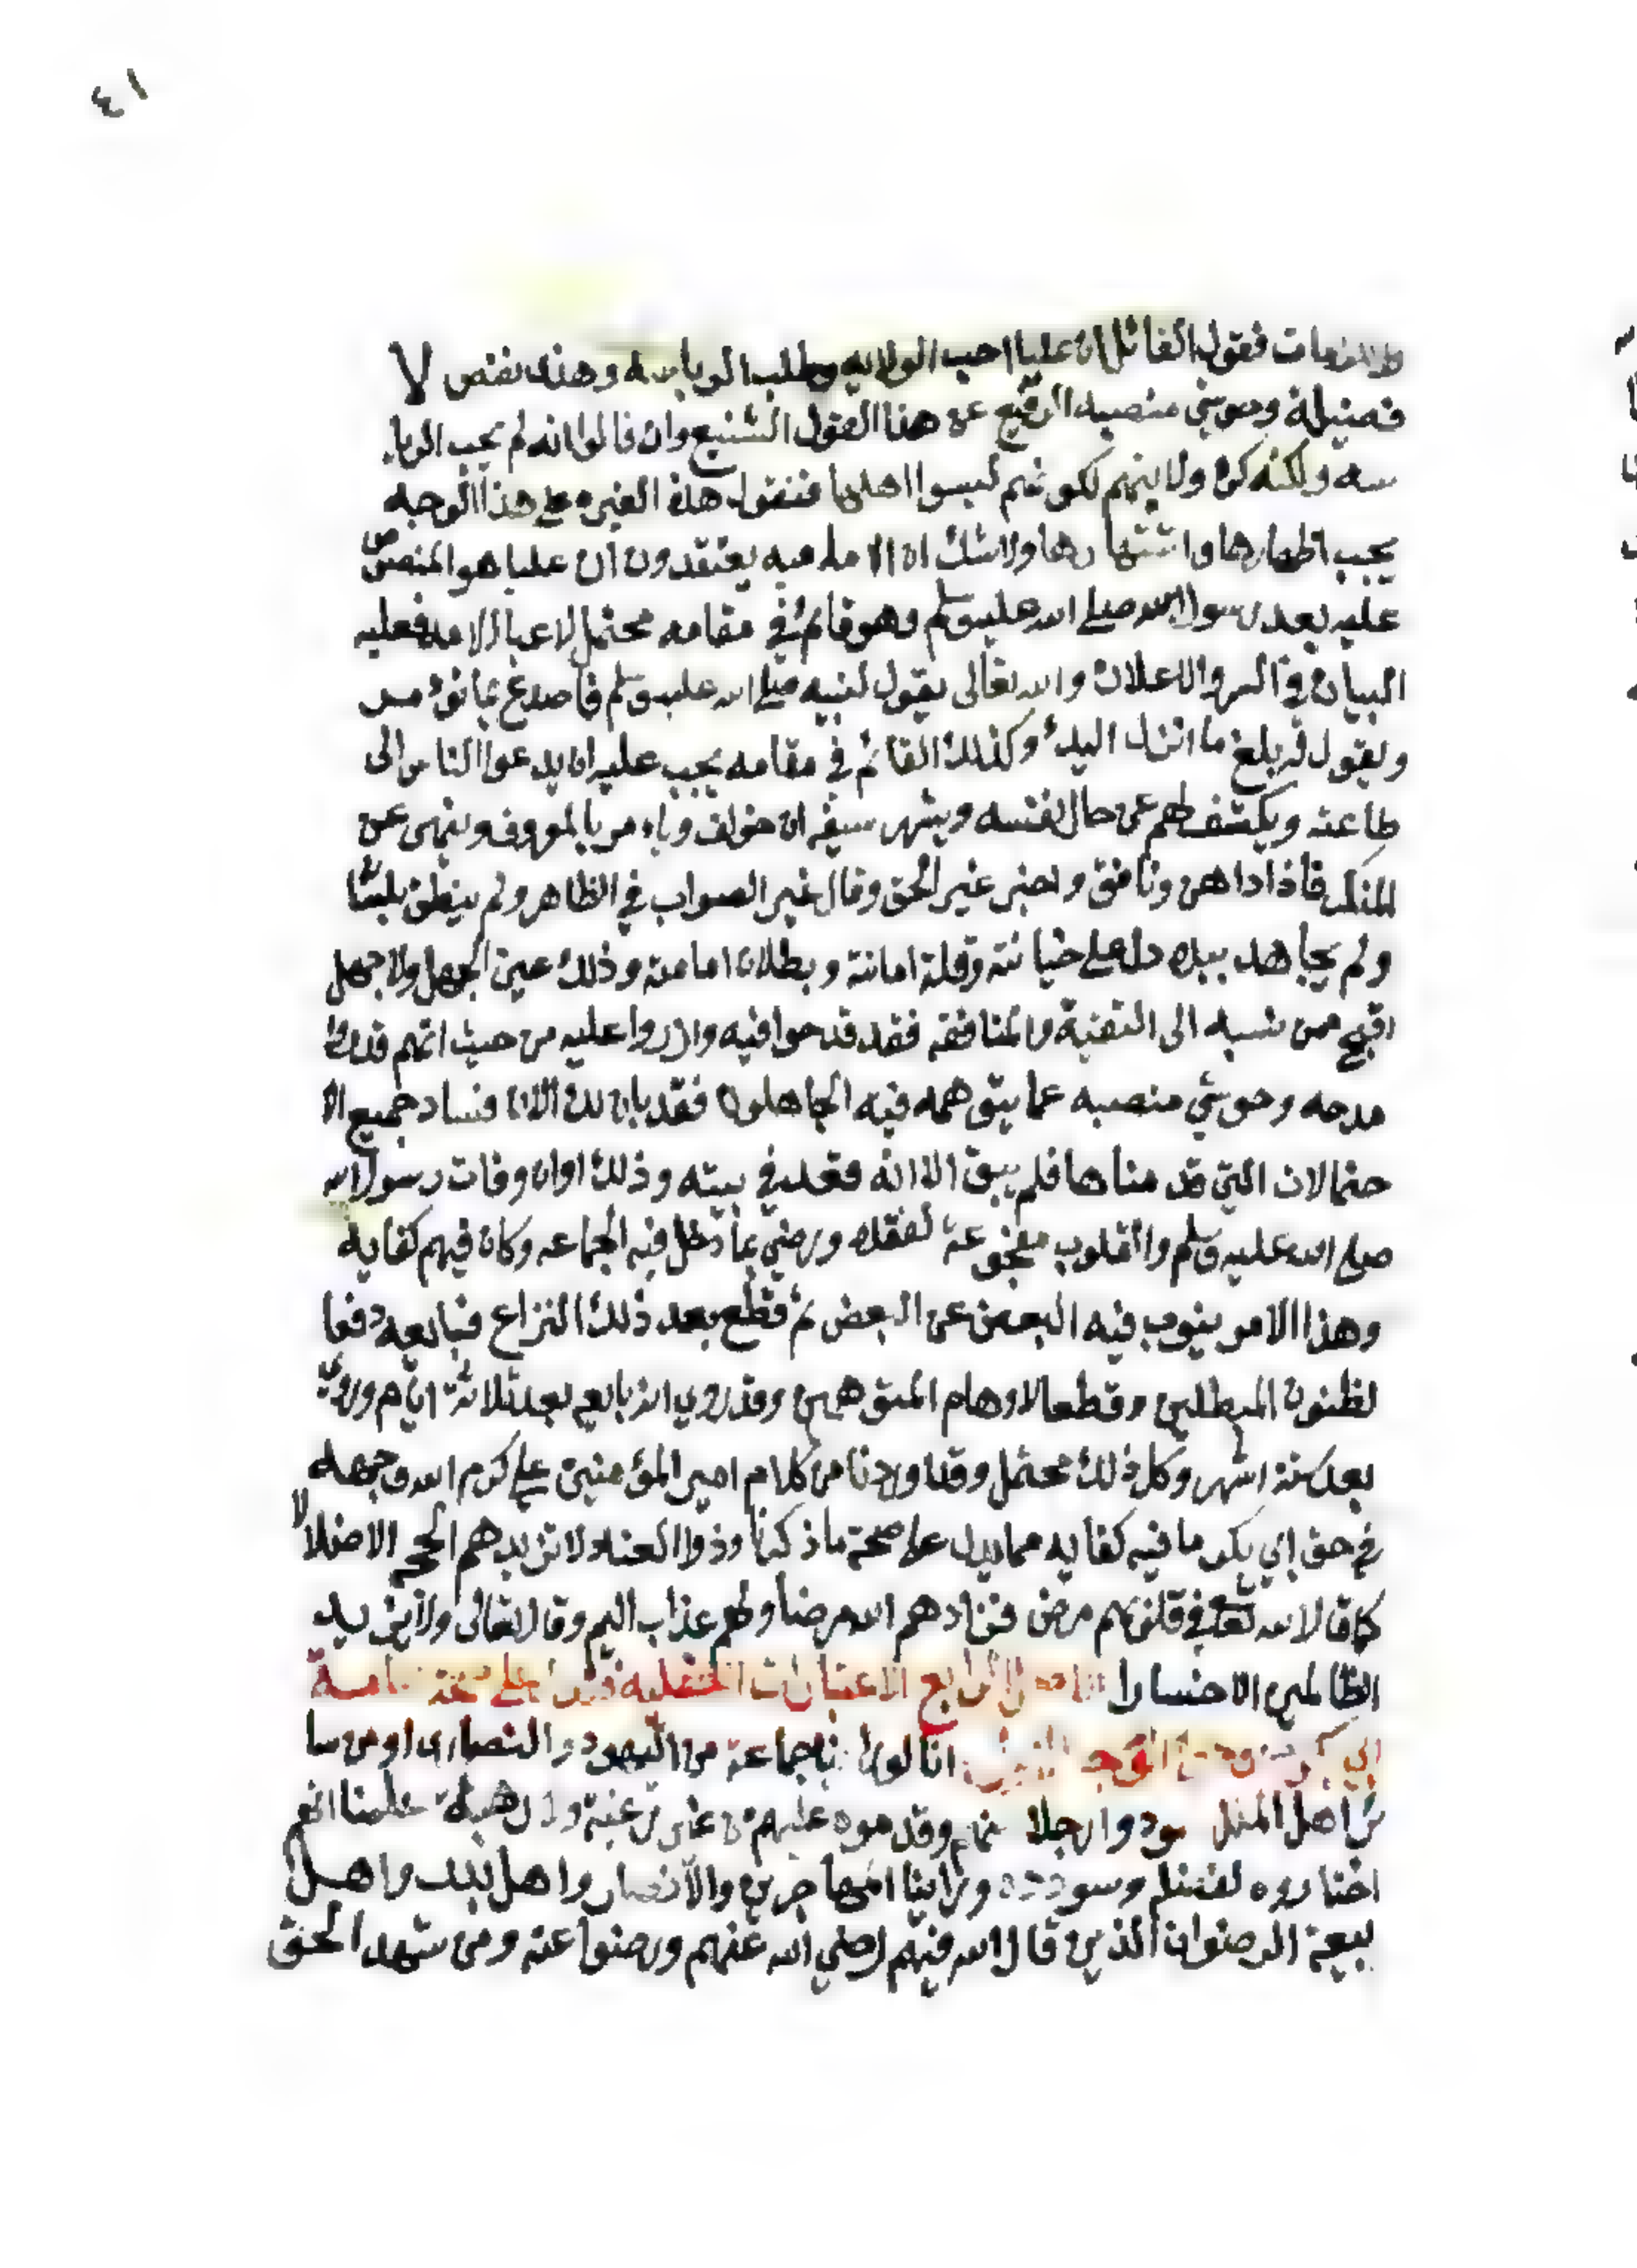 ٤١
فقول القائل ان عليا احب الولايه وطلب الرياسه وهذه نقص لا
فضيلة وحوشي منصبه الرفيع عن هذا القول الشنيع وان قالوا انه لم يحب الريا
سه ولكنه كره ولايتهم لكونهم ليسوا اهلها فنقول هذه الغيره على هذا الوجه
يجب اظهارها واشتهارها ولا شك ان الاماميه يعتقدون ان عليا هو المنصوص
عليه بعد رسول الله صلى الله عليه وسلم وهو قائم في مقامه محتمل لاعباء الامه فعليه
البيان في السر والاعلان والله تعالى يقول لنبيه صلى الله عليه وسلم فاصدع بما تؤمر
ويقول له بلغ ما انزل اليك وكذلك القائم في مقامه يجب عليه ان يدعوا الناس الى
طاعته ويكشف لهم عن حال نفسه ويشهر سيفه ان خولف ويامر بالمعروف وينهى عن
المنكر فاذا داهن ونافق واخبر غير الحق وقال غير الصواب في الظاهر ولم ينطق بلسا
ولم يجاهد بيده دل على خيانته وقلة امانته وبطلان امامته وذلك عين الجهل ولا جهل
اقبح ممن نسبه الى التقية والمنافقه فقد قدحوا فيه وازروا عليه من حيث انهم قد
مدحه وحوشي منصبه عما يتوهمه فيه الجاهلون فقد بان لك الان فساد جميع الا
حتمالات التي قدمناها فلم يبق الا انه قعد في بيته وذلك اوان وفات رسول الله
صلى الله عليه وسلم والقلوب مفجوعة لفقده ورضي بما دخل فيه الجماعه وكان فيهم كفايه
وهذا الامر ينوب فيه البعض عن البعض ثم قطع بعد ذلك النزاع فبايعه دفعا
لظنون المبطلين وقطعا لاوهام المتوهمين وقد روي انه بايع بعد ثلاثة ايام وروي
بعد ستة اشهر وكل ذلك محتمل وقد اوردنا من كلام امير المؤمنين علي كرم الله وجهه
في حق ابي بكر ما فيه كفايه مما يدل على صحة ما ذكرنا وذووا العناد لا تزيدهم الحجج الا ضلالا
كما قال الله تعالى في قلوبهم مرض فزادهم الله مرضا ولهم عذاب اليم وقال تعالى ولا يزيد
الظالمين الا خسارا الرابع الاعتبارات العقليه على صحة امامة
ابي بكر الوجه انا لو راينا جماعة من اليهود والنصارى او من سا
ير اهل الملل سودوا رجلا منهم وقدموه عليهم من غير رغبة ولا رهبة علمنا انهم
اختاروه لفضله وسودده وراينا المهاجرين والانصار واهل بدر واهل
بيعة الرضوان الذين قال الله فيهم رضي الله عنهم ورضوا عنه ومن شهد الحق